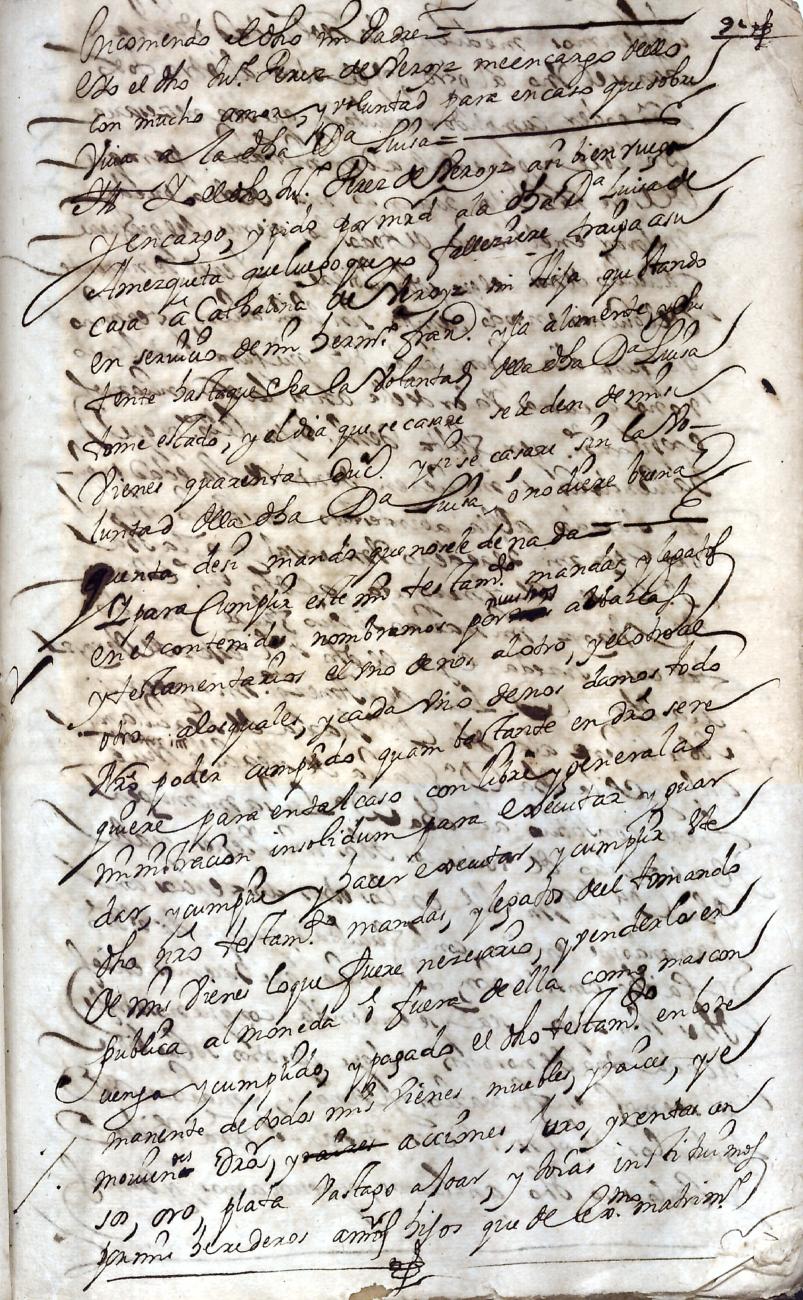 encomendo el dho mi Padre =
e yo el dho Juº Perez de Heroyz me encargo dello
con mucho amor, y voluntad para en caso que sobre
viva a la dha Dª Luisa =
Y el dho Juº Perez de Heroyz assi bien ruego
y encargo, y pido por mrd a la dha Dª Luisa de
Amezqueta que luego que yo falleziere trayga a su
casa a Cathalina de Heroyz mi Hija que estando
en servicio de mi hermº Franº y la alimente, y sus
tente hasta que sea la voluntad della dha Dª Luisa
tome estado, y el dia que se casare se le den de mis
vienes quarenta Ducº y si se casare sin la vo-
luntad della dha Dª Luisa, o no diere buena
quenta de si mando que no se le de nada =
Y para cumplir este mi testamto mandas, y legatos
en el contenidos nombramos por nuestros albazeas
y testamentarios el uno de nos al otro, y el otro al
otro a los quales, y cada uno de nos damos todo
nro poder cumplido quam bastante en dro se re
quiere para en tal caso con libre y general ad
ministracion insolidum para executar y guar
dar, y cumplir y hacer executar, y cumplir este
dho nro testamto mandas, y legatos del tomando
de mis vienes lo que fuere nezesario, y venderlos en
publica almoneda o fuera de ella como mas con
venga y cumplido, y pagado el dho testamto en lo re
manente de todos mis vienes muebles, raices, y se
movientes dros, y acciones, juro, y rentas cen
sos, oro, plata vastago axoar, y joias instituimos
por mis herederos a mis hijos que de este matrimº